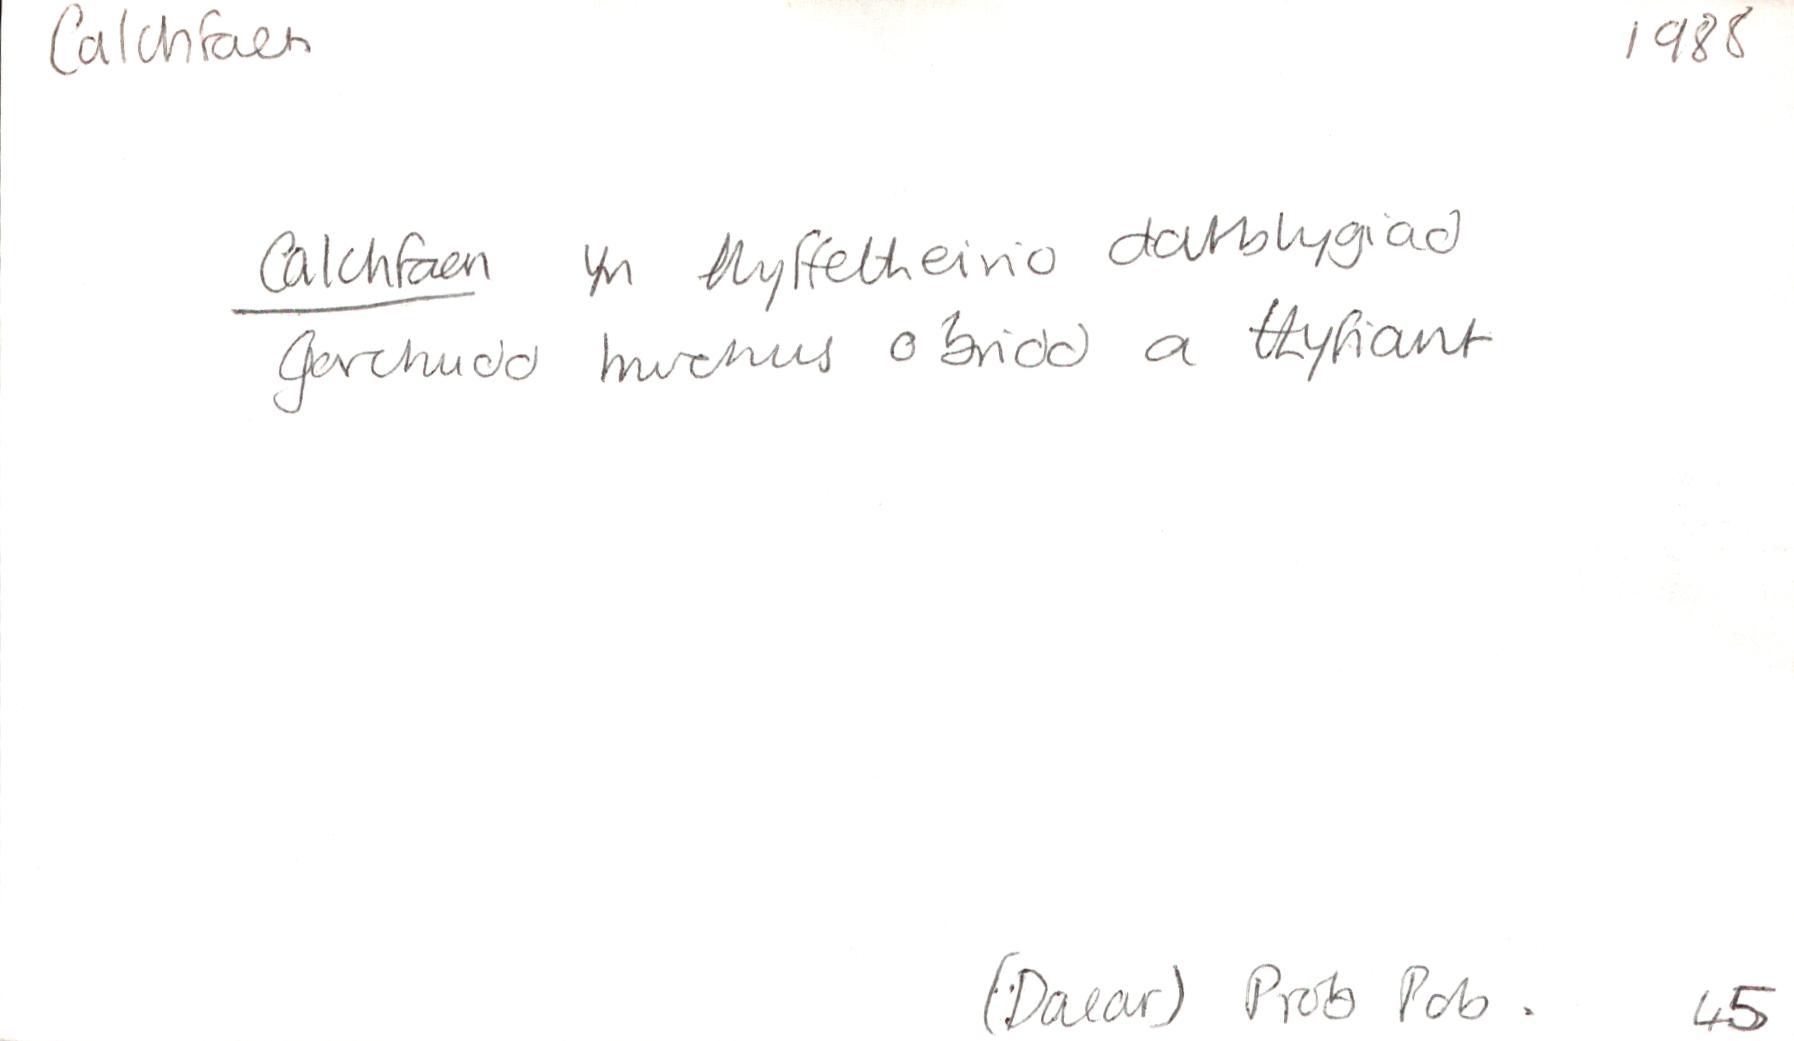 Calchfaen 1988
Calchfaen yn llyffetheirio datblygiad
gorchudd trwchus o bridd a thyfiant
(Daear) Prob Pob. 45